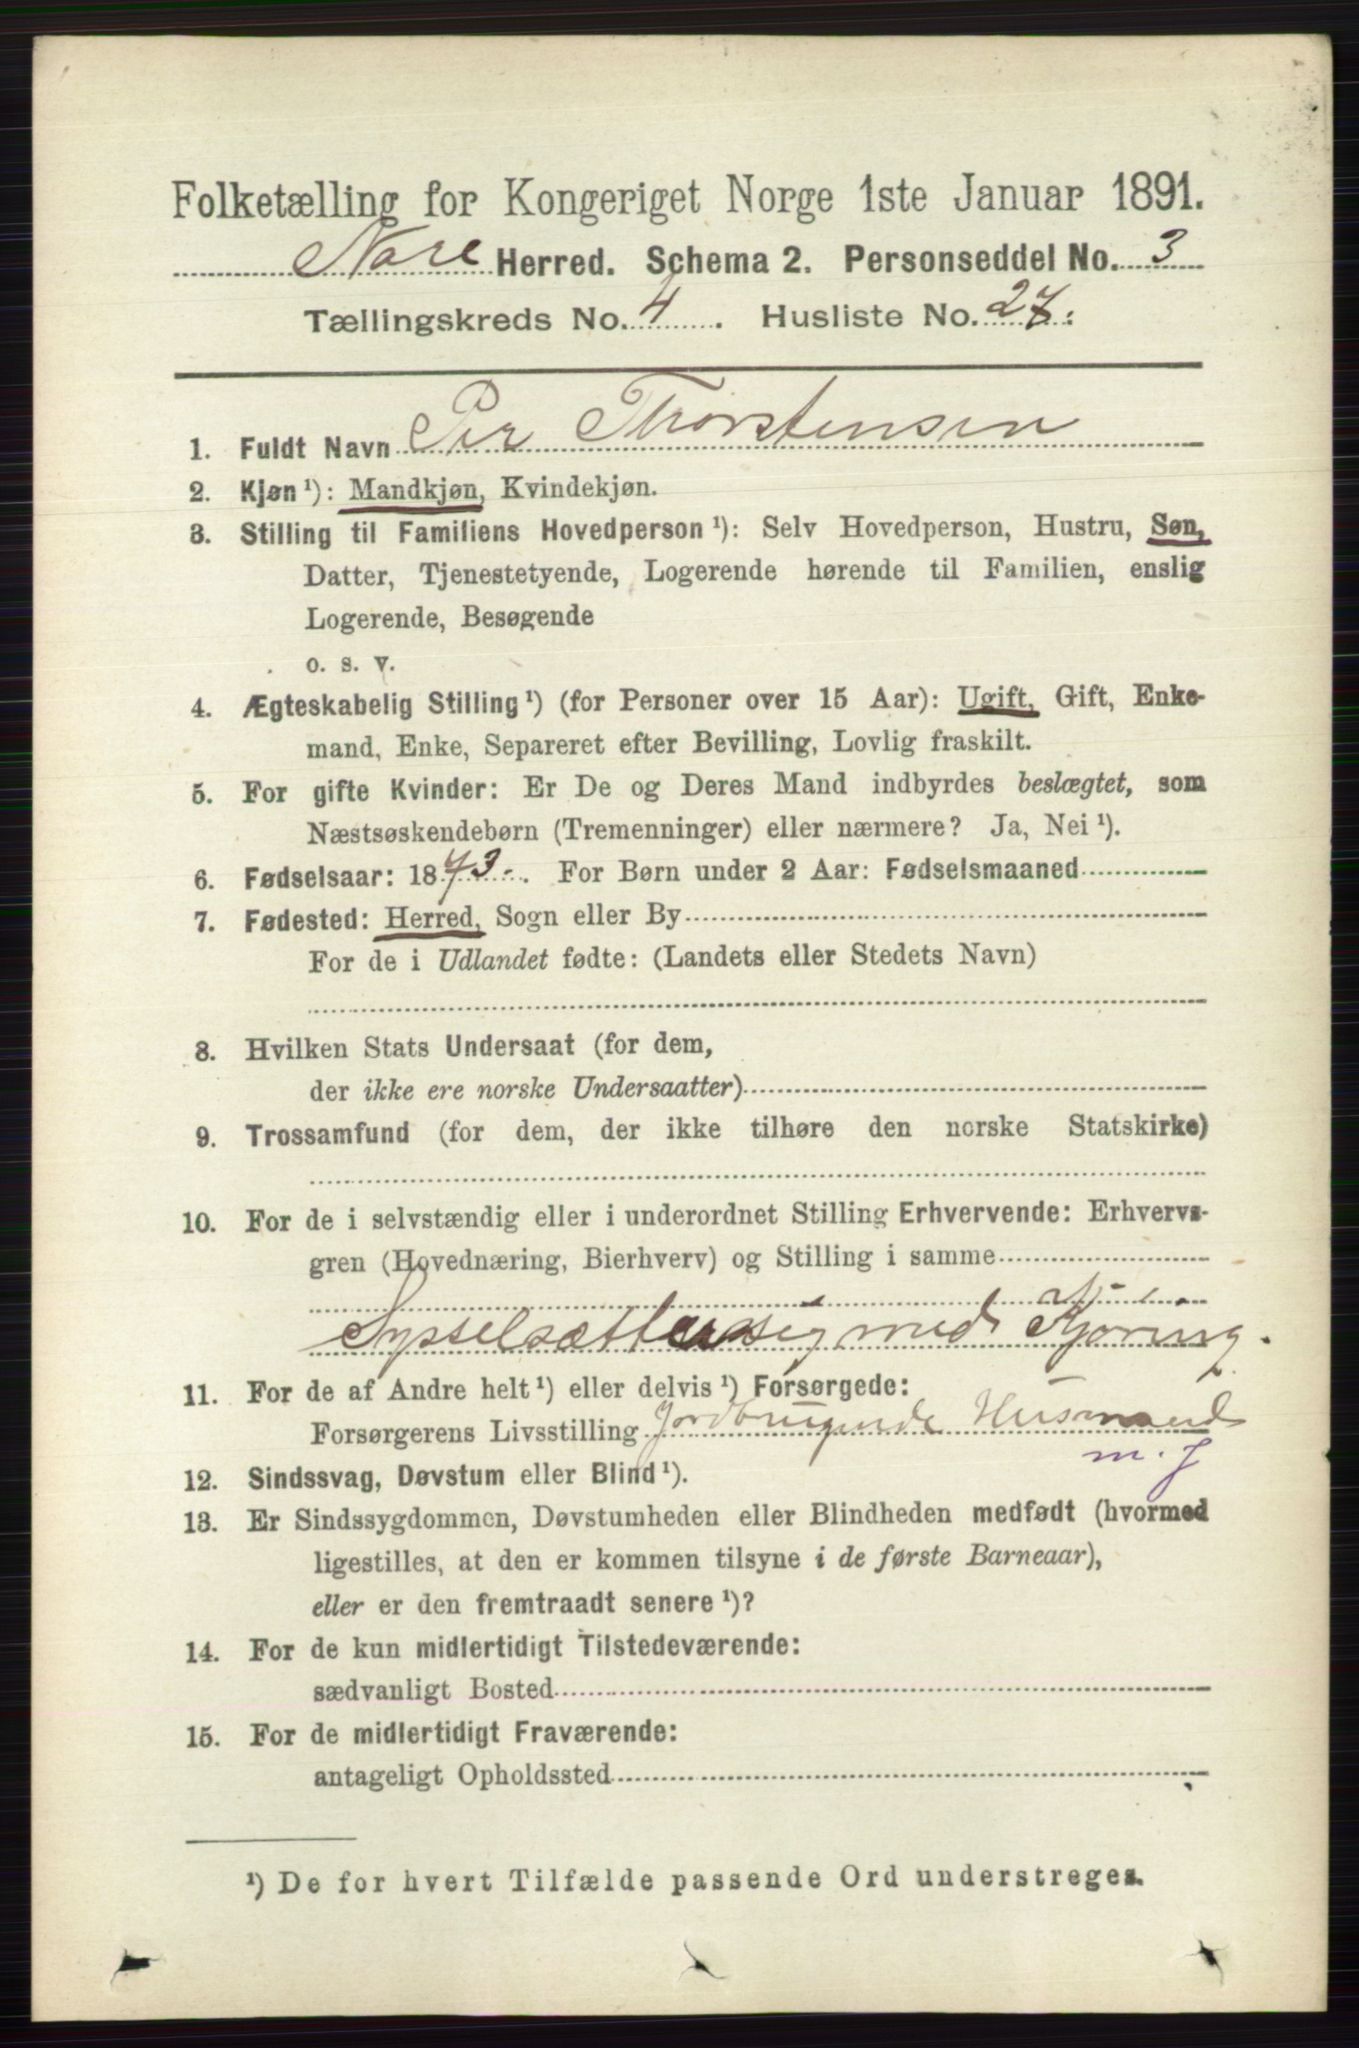 Folketælling for Kongeriget Norge 1ste Januar 1891.
Nore Herred. Schema 2. Personseddel No. 3
Tællingskreds No. 4. Husliste No. 27.
1. Fuldt Navn Per Thorstensen
2. Kjøn ¹): Mandkjøn, Kvindekjøn.
3. Stilling til Familiens Hovedperson ¹): Selv Hovedperson, Hustru, Søn,
Datter, Tjenestetyende, Logerende hørende til Familien, enslig
Logerende, Besøgende
o. s. v.
4. Ægteskabelig Stilling ¹) (for Personer over 15 Aar): Ugift, Gift, Enke-
mand, Enke, Separeret efter Bevilling, Lovlig fraskilt.
5. For gifte Kvinder: Er De og Deres Mand indbyrdes beslægtet, som
Næstsøskendebørn (Tremenninger) eller nærmere? Ja, Nei ¹).
6. Fødselsaar: 1873. For Børn under 2 Aar: Fødselsmaaned
7. Fødested: Herred, Sogn eller By
For de i Udlandet fødte: (Landets eller Stedets Navn)
8. Hvilken Stats Undersaat (for dem,
der ikke ere norske Undersaatter)
9. Trossamfund (for dem, der ikke tilhøre den norske Statskirke)
10. For de i selvstændig eller i underordnet Stilling Erhvervende: Erhvervs-
gren (Hovednæring, Bierhverv) og Stilling i samme
Sysselsætter sig med Kjøring.
11. For de af Andre helt ¹) eller delvis ¹) Forsørgede:
Forsørgerens Livsstilling Jordbrugende Husmand
m. J
12. Sindssvag, Døvstum eller Blind ¹).
13. Er Sindssygdommen, Døvstumheden eller Blindheden medfødt (hvormed
ligestilles, at den er kommen tilsyne i de første Barneaar),
eller er den fremtraadt senere ¹)?
14. For de kun midlertidigt Tilstedeværende:
sædvanligt Bosted
15. For de midlertidigt Fraværende:
antageligt Opholdssted
¹) De for hvert Tilfælde passende Ord understreges.